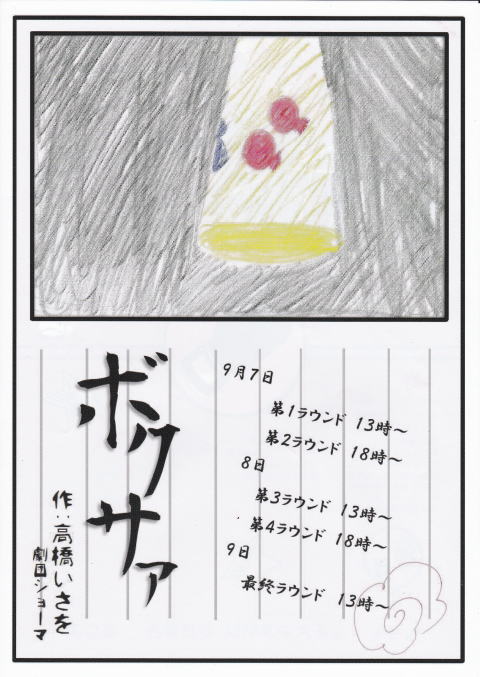 ボクサァ
作:高橋いさを
劇団ショーマ
9月7日
第1ラウンド 13時～
第2ラウンド 18時～
8日
第3ラウンド 13時～
第4ラウンド 18時～
9日
最終ラウンド 13時～